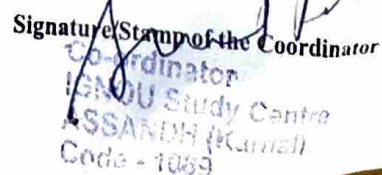 Signature/Stamp of the Coordinator
Co-ordinator
IGNOU Study Centre
ASSANDH (Karnal)
Code - 1069